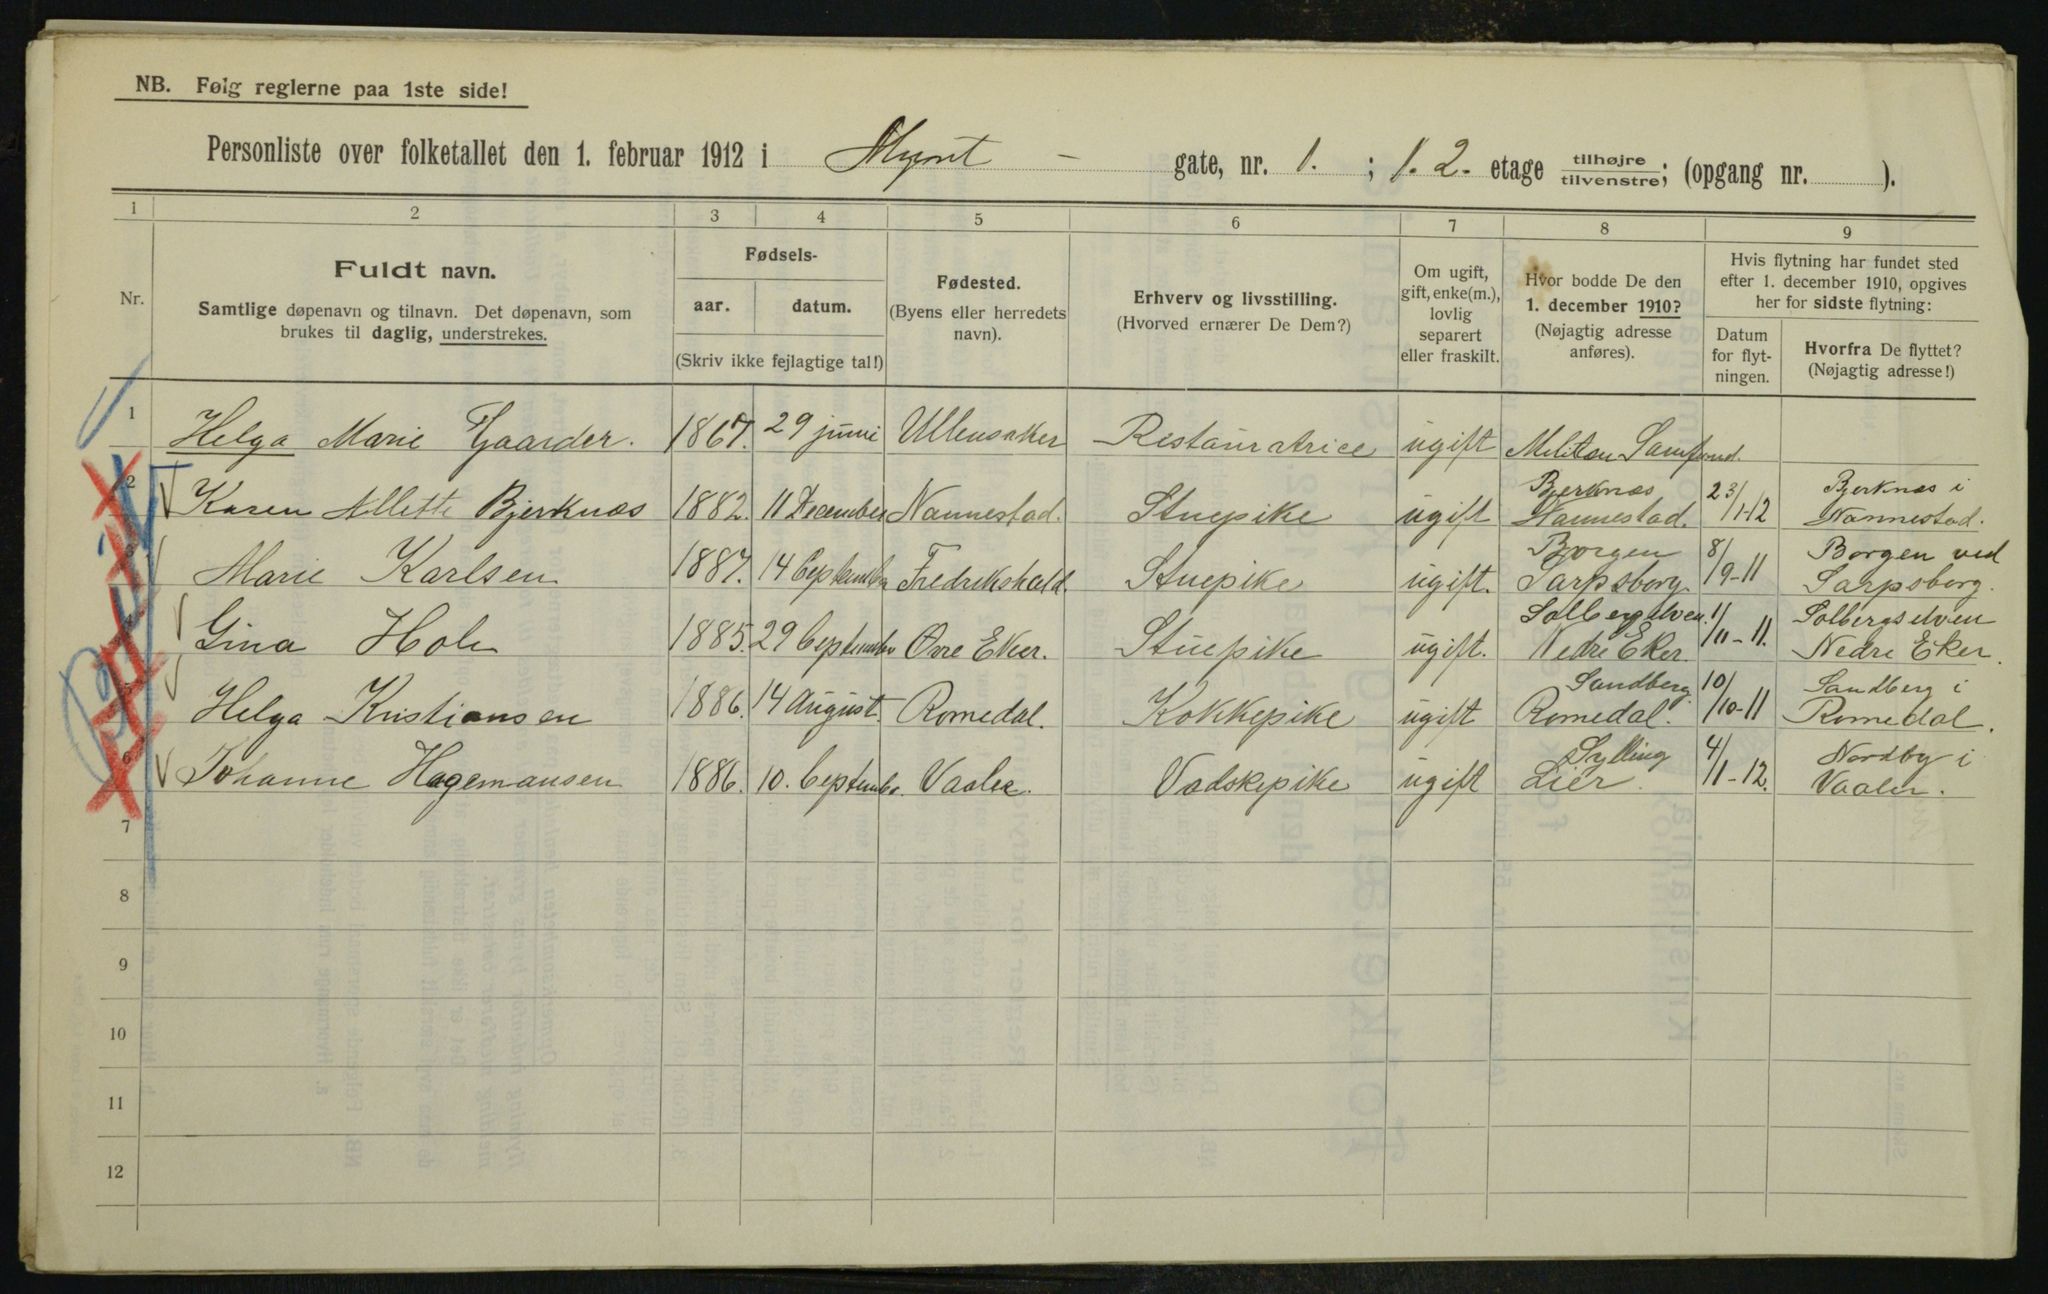 NB. Følg reglerne paa 1ste side!
Personliste over folketallet den 1. februar 1912 i Mynt - gate, nr. 1. ; 1. 2. etage tilhøjre/tilvenstre; (opgang nr. ).
1 2 3 4 5 6 7 8 9
Nr.
Fuldt navn.
Samtlige døpenavn og tilnavn. Det døpenavn, som
brukes til daglig, understrekes.
Fødsels-
aar. datum.
(Skriv ikke fejlagtige tal!)
Fødested.
(Byens eller herredets
navn).
Erhverv og livsstilling.
(Hvorved ernærer De Dem?)
Om ugift,
gift, enke(m.),
lovlig
separert
eller fraskilt.
Hvor bodde De den
1. december 1910?
(Nøjagtig adresse
anføres).
Hvis flytning har fundet sted
efter 1. december 1910, opgives
her for sidste flytning:
Datum
for flyt-
ningen.
Hvorfra De flyttet?
(Nøjagtig adresse!)
1 Helga Marie Gaarder. 1867. 29 juni Ullensaker Restauratrice ugift Samfund.
2 Karen Allette Bjerknæs 1882. 11 December Nannestad. Stuepike ugift Bjerknæs Nannestad. 23/1-12 Bjerknæs i Nannestad.
3 Marie Karlsen 1887. 14 September Fredrikshald. Stuepike ugift. Borgen Sarpsborg. 8/9-11 Borgen ved Sarpsborg.
4 Gina Hole 1885. 29 September Øvre Eker. Stuepike ugift. Solbergelven. Nedre Eker. 1/11-11. Solbergselven Nedre Eker.
5 Helga Kristiansen 1886. 14 August. Romedal. Kokkepike ugift Sandberg. Romedal. 10/10-11 Sandberg i Romedal.
6 Johanne Hagemansen 1886. 10. September. Vaaler. Vaskepike ugift Sylling Lier. 4/1-12. Nordby i Vaaler.
7
8
9
10
11
12